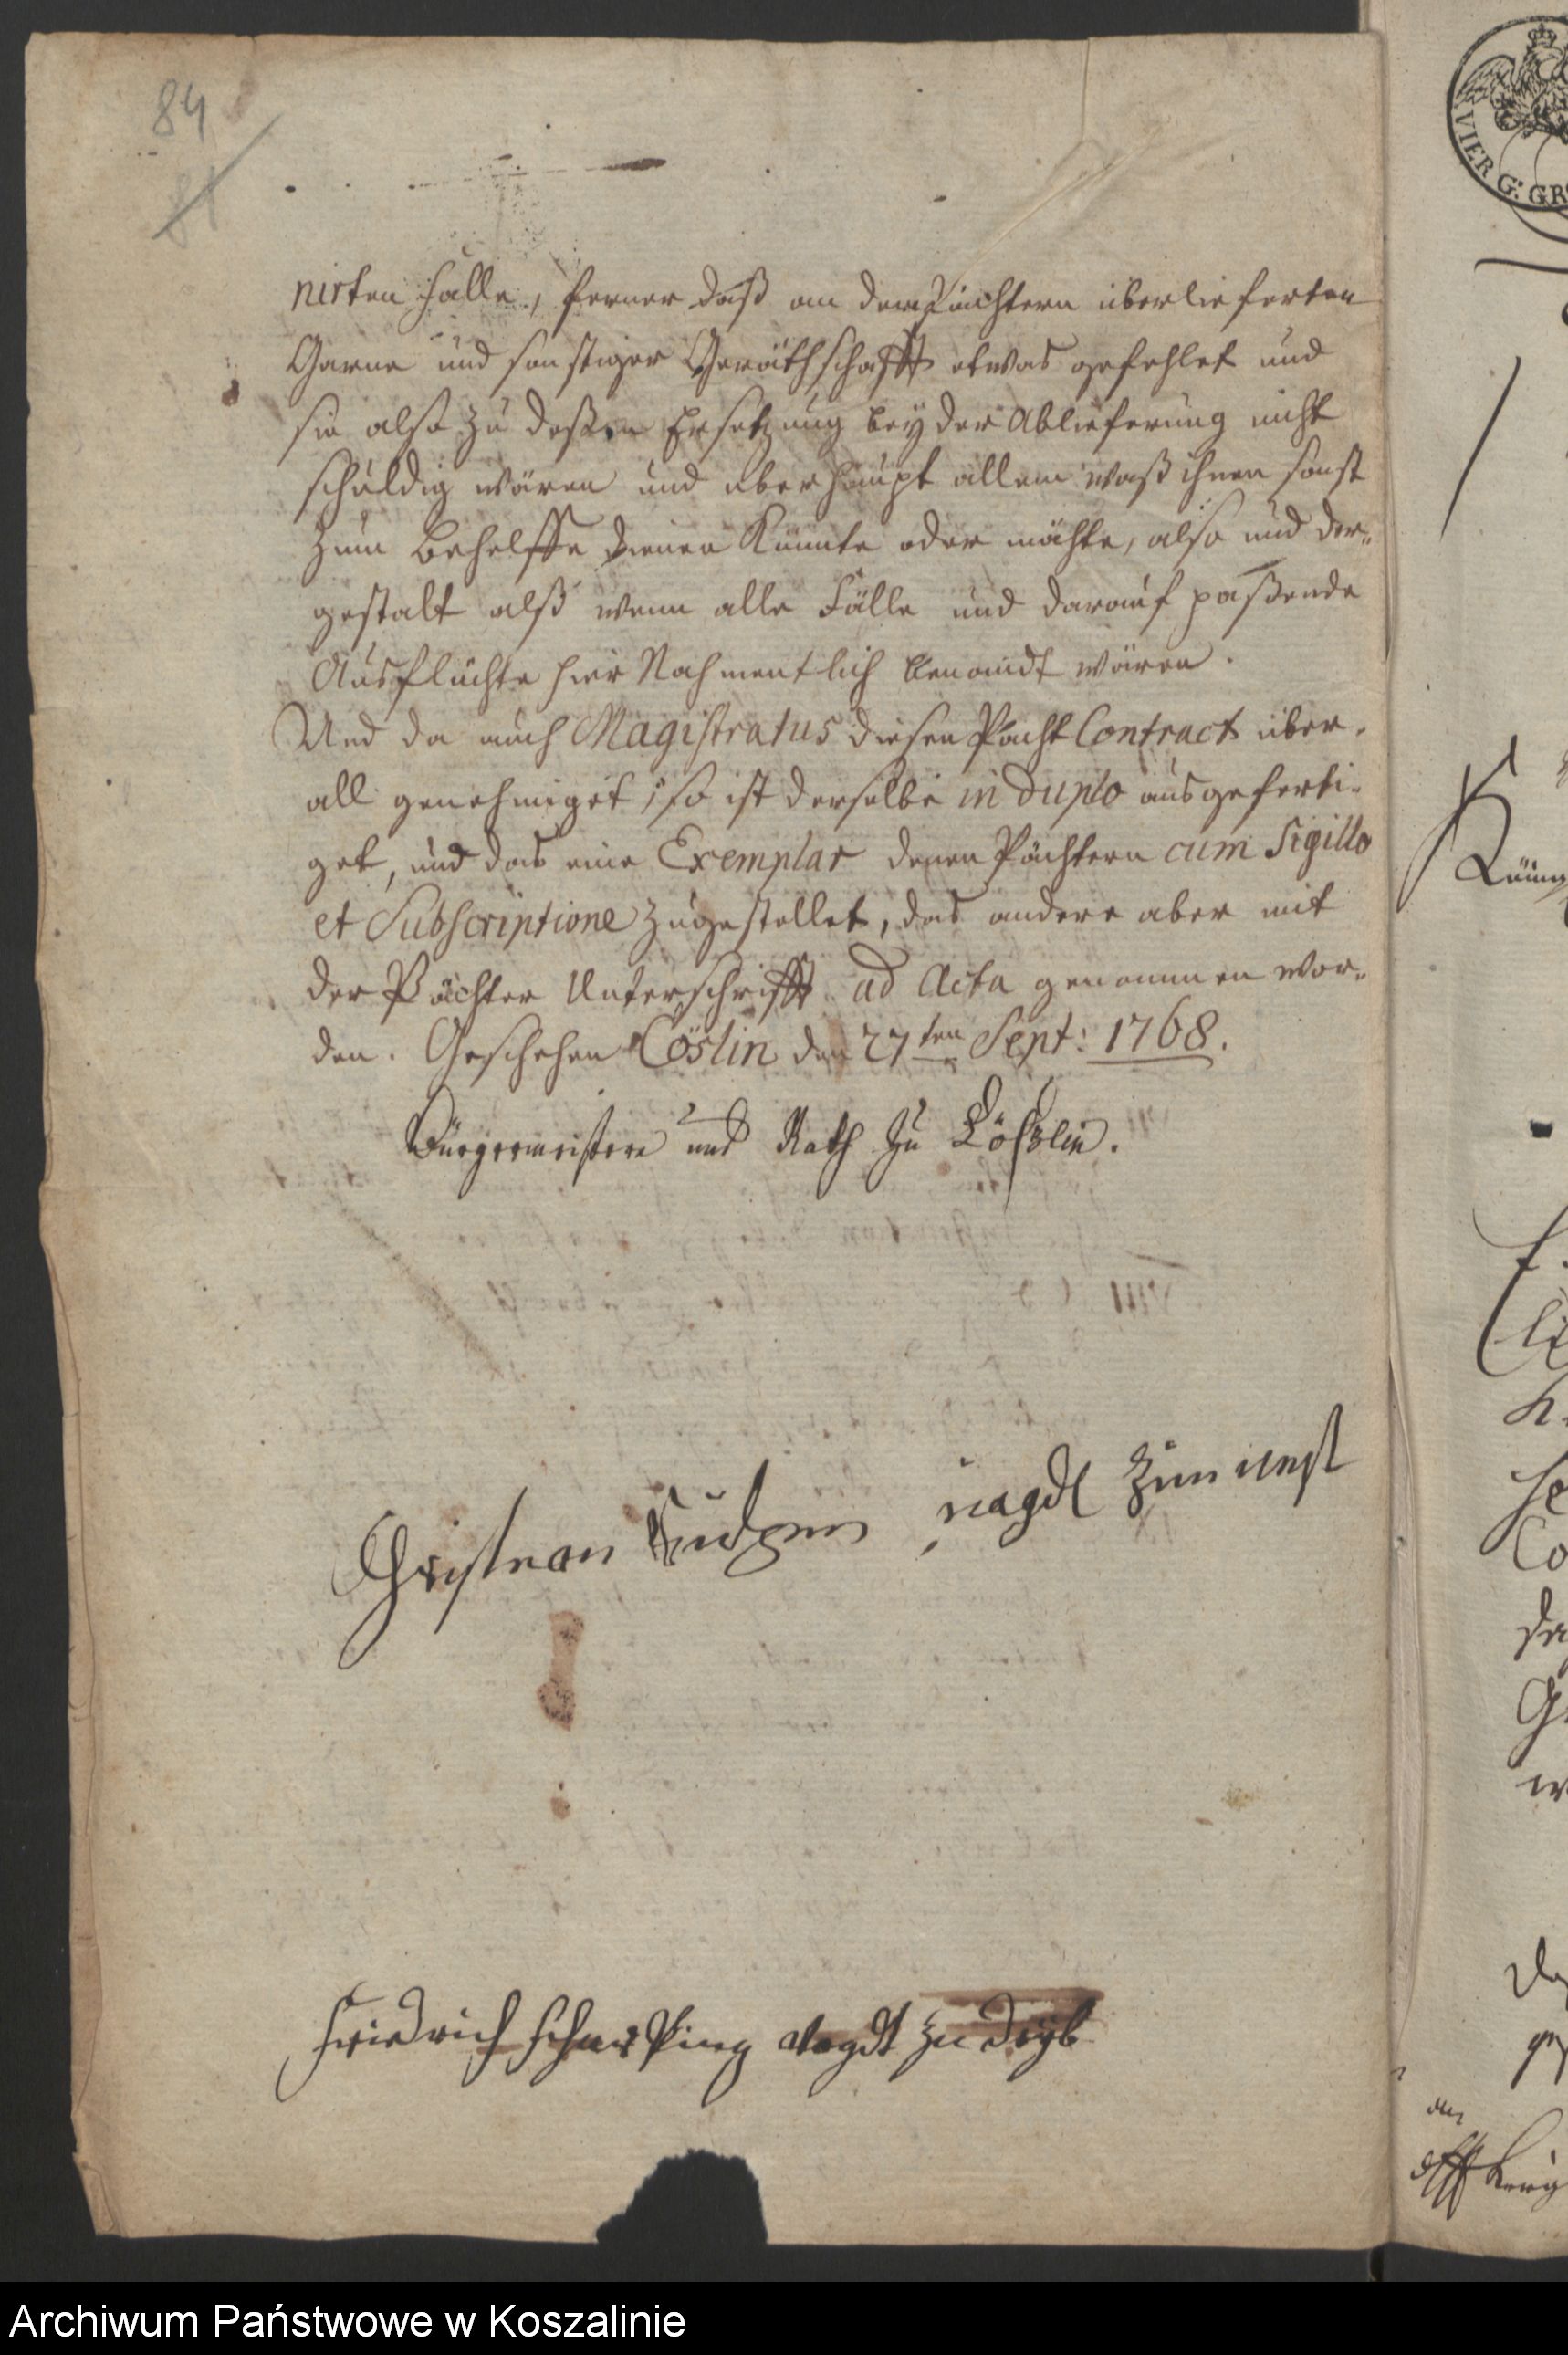 84
81
nirten Fälle, ferner daß an dem Pächtern überlieferten
Garne und sonstiger Geräthschafft etwas gefehlet und
sie also zu deßen Ersetzung bey der Ablieferung nicht
schuldig wären und überhaupt allem waß ihnen sonst
zum Behelffe dienen könnte oder möchte, also und der-
gestalt alß wenn alle Fälle und darauf paßende
Ausflüchte hier Nahmentlich benandt wären.
Und da auch Magistratus diesen Pacht Contract über-
all genehmiget, so ist derselbe in duplo ausgeferti-
get, und das eine Exemplar denen Pächtern cum Sigillo
et Subscriptione zugestellet, das andere aber mit
der Pächter Unterschrifft ad Acta genommen wor-
den. Geschehen Cöslin den 27ten Sept: 1768.
Bürgermeistere und Rath zu Cößlin.
Christian
Friedrich vogdt zu
VIER G: GR
Archiwum Państwowe w Koszalinie